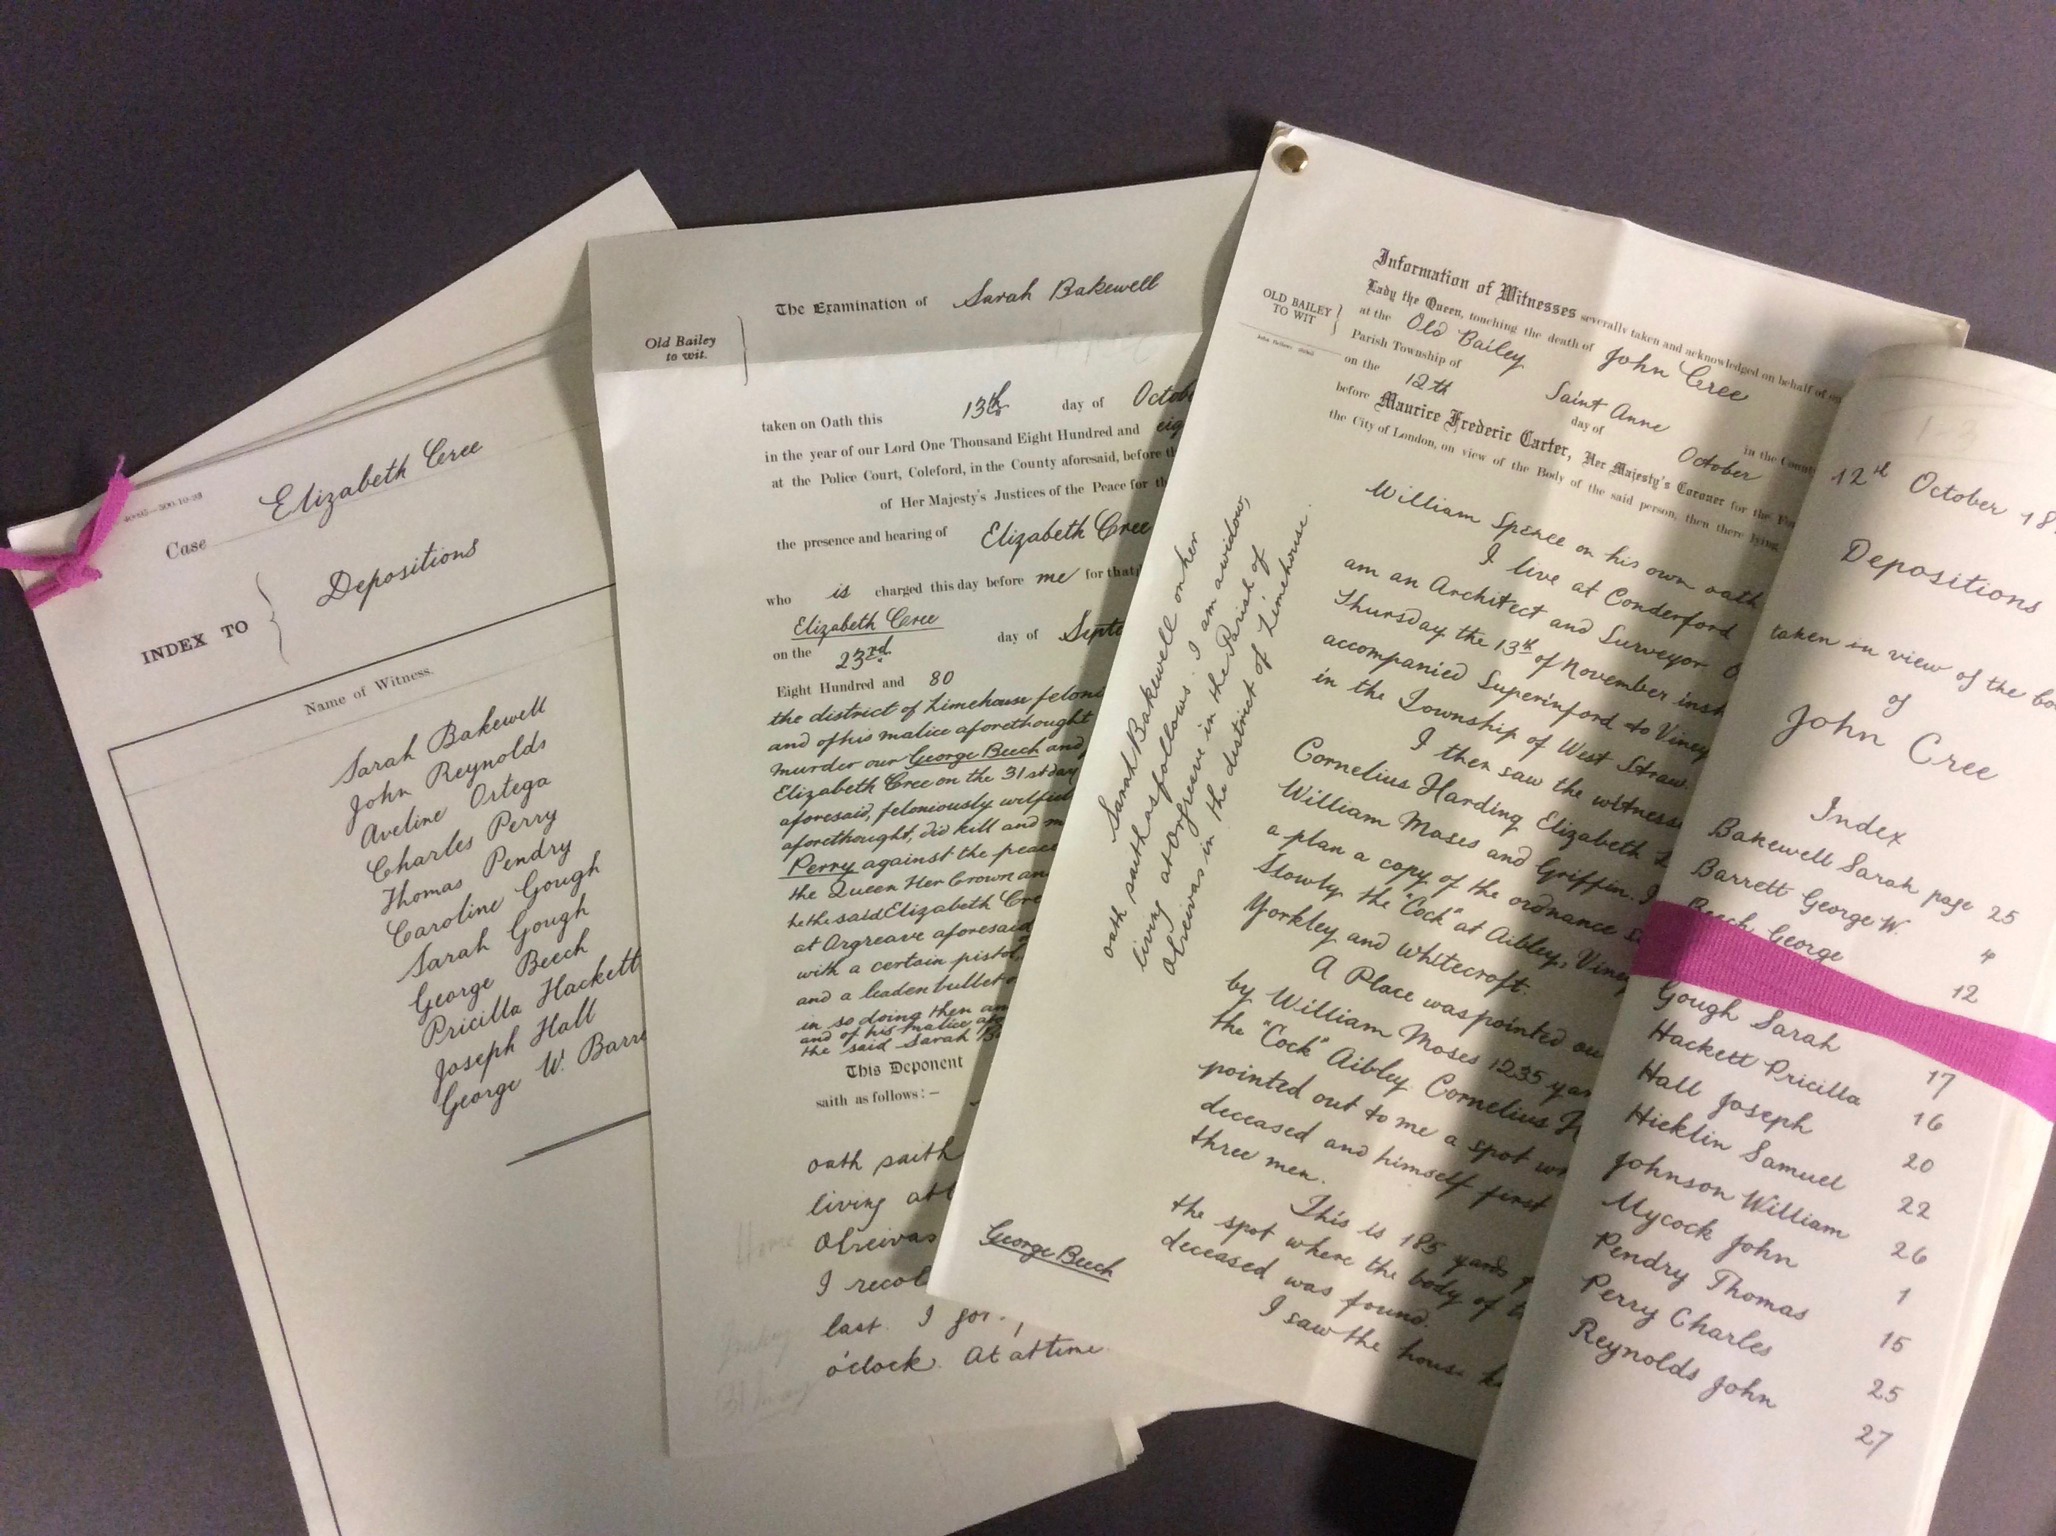 Case Elizabeth Cree
INDEX TO
Depositions
Name of Witness.
Sarah Bakewell
John Reynolds
Aveline Ortega
Charles Perry
Thomas Pendry
Caroline Gough
Sarah Gough
George Beech
Pricilla Hackett
Joseph Hall
George W. Barre
The Examination of Sarah Bakewell
Old Bailey
to wit.
taken on Oath this 13th day of Octobe
in the year of our Lord One Thousand Eight Hundred and eig
at the Police Court, Coleford, in the County aforesaid, before th
of Her Majesty's Justices of the Peace for th
the presence and hearing of Elizabeth Cree
who is charged this day before me for that
Elizabeth Cree
on the 23rd. day of Septe
Eight Hundred and 80
the district of Limehouse felon
and of his malice aforethought
murder our George Beech and
Elizabeth Cree on the 31st day
aforesaid, feloniously wilful
aforethought, did kill and m
Perry against the peace
the Queen Her Crown an
he the said Elizabeth Cre
at Orgreave aforesaid
with a certain pistol
and a leaden bullet
in so doing then an
and of his malice afo
the said Sarah Ba
This Deponent
saith as follows:-
oath saith
living at
Olreivas
I recol
last. I got
o'clock. At a time
Information of Witnesses severally taken and acknowledged on behalf of ou
Lady the Queen, touching the death of John Cree
OLD BAILEY
TO WIT
at the Old Bailey
Parish Township of Saint Anne in the County
on the 12th day of October
before Maurice Frederic Carter, Her Majesty's Coroner for the
the City of London, on view of the Body of the said person, then there lying
William Spence on his own oath
I live at Conderford
am an Architect and Surveyor
Thursday the 13th of November inst
accompanied Superinford to Viney
in the Township of West Straw.
I then saw the witness
Cornelius Harding Elizabeth
William Moses and Griffin. I
a plan a copy of the ordnance
Slowly the "Cock" at Aibley, Viney
Yorkley and Whitecroft.
A Place was pointed ou
by William Moses 1235 yar
the "Cock" Aibley Cornelius H
pointed out to me a spot w
deceased and himself first
three men.
This is 185 yards
the spot where the body of t
deceased was found.
I saw the house
Sarah Bakewell on her
oath saith as follows. I am a widow,
living at Orgreave in the Parish of
Olreivas in the district of Limehouse.
George Beech
12th October 18
Depositions
taken in view of the bo
of
John Cree
Index
Bakewell Sarah page 25
Barrett George W. 4
Beech George 12
Gough Sarah 17
Hackett Pricilla 16
Hall Joseph 20
Hicklin Samuel 22
Johnson William 26
Mycock John 1
Pendry Thomas 15
Perry Charles 25
Reynolds John 27